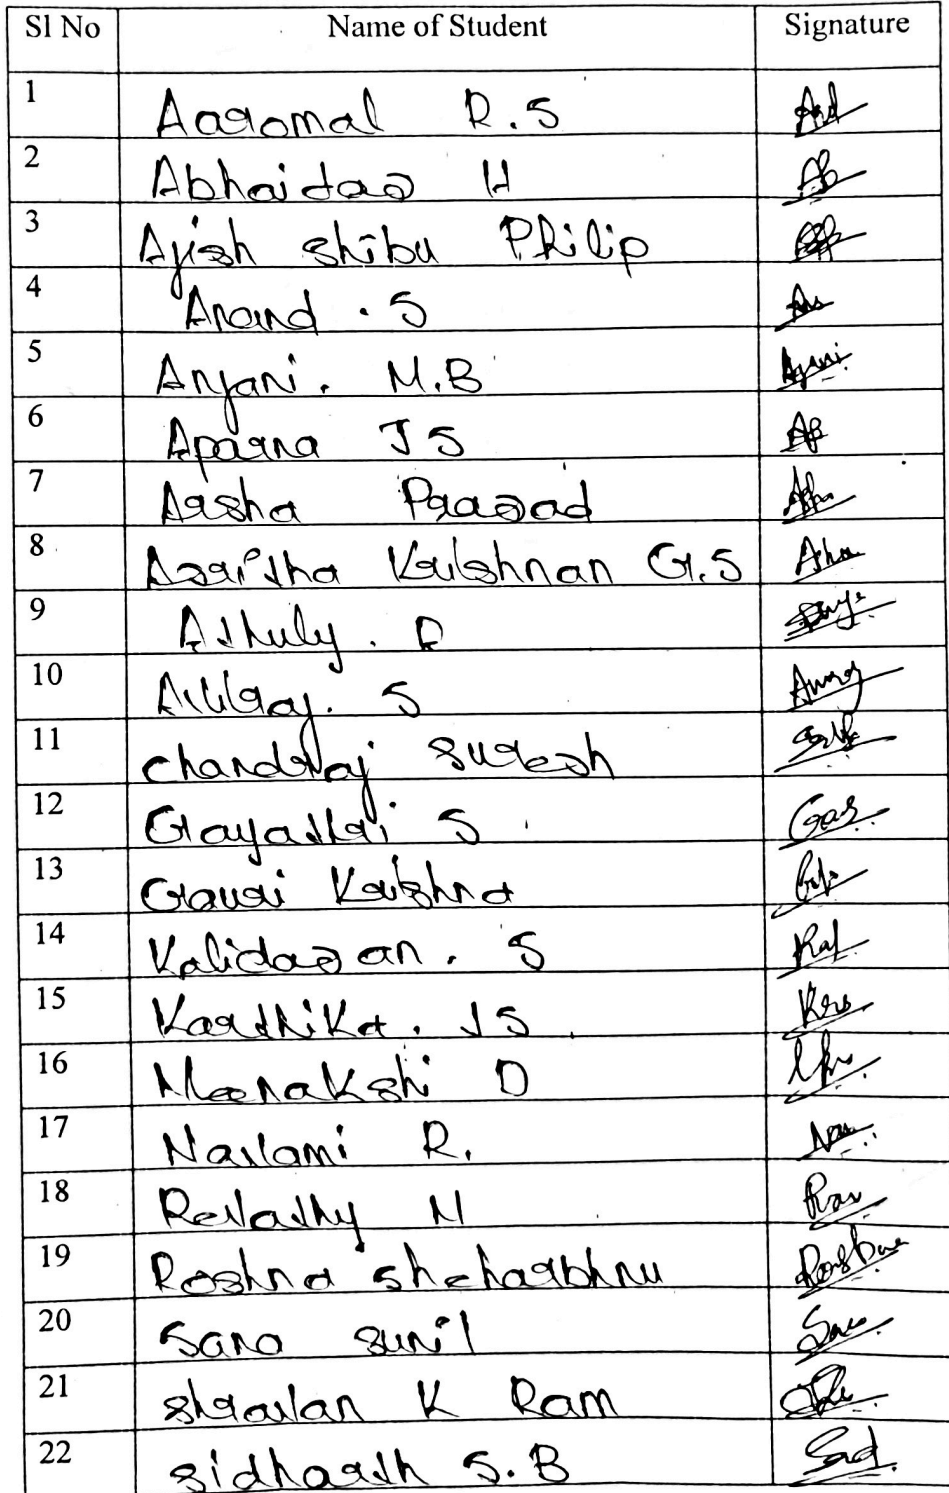 Sl No Name of Student Signature
1 Aaromal R.S
2 Abhaidas H
3 Ajish Shibu Philip
4 Anand . S
5 Anjani. M.B
6 Aparna J S
7 Arsha Prasad
8 Asritha Krishnan G.S
9 Athuly. A
10 Atulraj. S
11 Chandraj Suresh
12 Gayathri S
13 Gauri Krishna
14 Kalidasan. S
15 Karthika. J S
16 Meenakshi D
17 Navami R.
18 Revathy M
19 Roshna Sheharbhnu
20 Sana Sunil
21 Shravan K Ram
22 Sidharth S.B